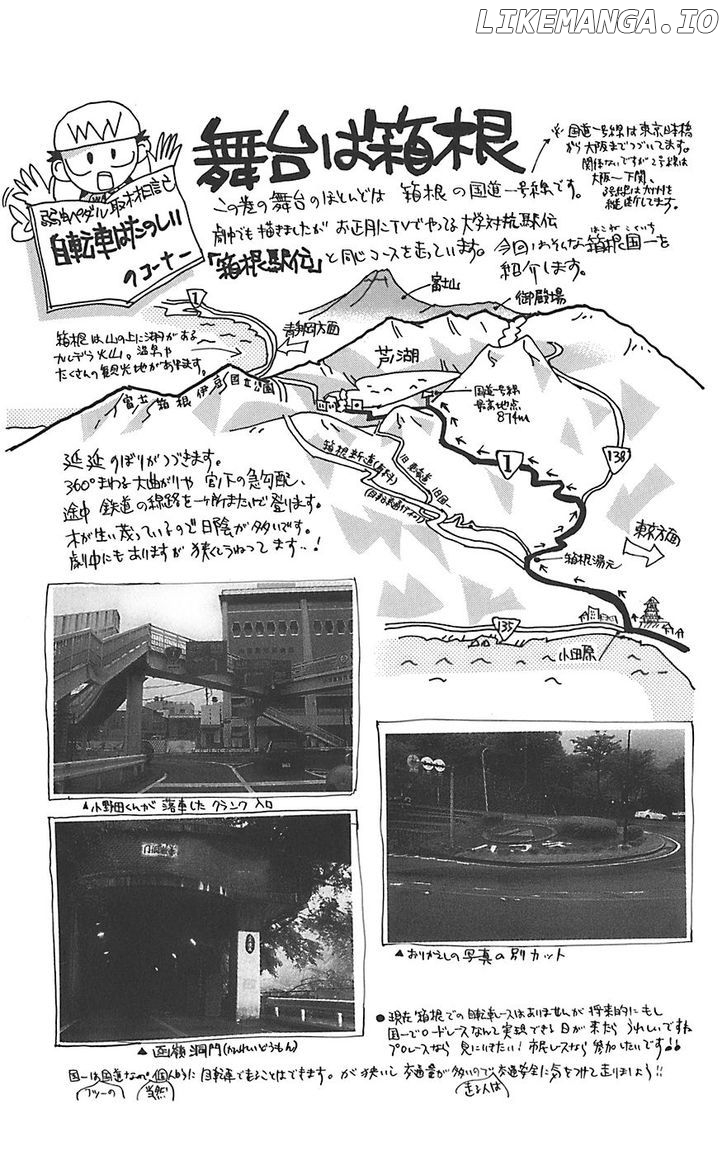 LIKEMANGA.IO
弱虫ペダル取材日記
自転車はたのしい
のコーナー
舞台は箱根
国道一号線は東京日本橋
から大阪までつづいてます。
関係ないですが2号線は
大阪〜下関、
3号線は九州を
縦断してます。
この巻の舞台のほとんどは 箱根の国道一号線です。
劇中でも描きましたが お正月にTVでやってる大学対抗駅伝
「箱根駅伝」と同じコースを走っています。今回はそんな箱根国一を
はこね こくいち
紹介します。
富士山
御殿場
1
青静岡方面
箱根は山の上に湖がある
カルデラ火山。温泉や
たくさんの観光地があります。
芦ノ湖
富士箱根伊豆国立公園
国道一号線
最高地点
874m
138
箱根新道(有料)
旧東海道 旧国一
1
延延のぼりがつづきます。
360°まわる大曲がりや 宮ノ下の急勾配、
途中 鉄道の線路を一ヶ所またいで登ります。
木が生い茂っているので日陰が多いです。
劇中にもありますが 狭くてうねってます…!
東京方面
箱根湯元
135
小田原
▲小野田くんが落車したクランク入口
▲おりかえしの写真の別カット
▲函嶺洞門(かんれいどうもん)
●現在 箱根での自転車レースはありませんが 将来的にもし
国一でロードレースなんて実現できる日が来たら うれしいですね
プロレースなら 見にいきたい! 市民レースなら 参加したいです!!
国一は国道なので個人的に自転車で走ることはできます。が狭いし 交通量が多いので、交通安全に気をつけて走りましょう!!
フツーの 当然 走る人は